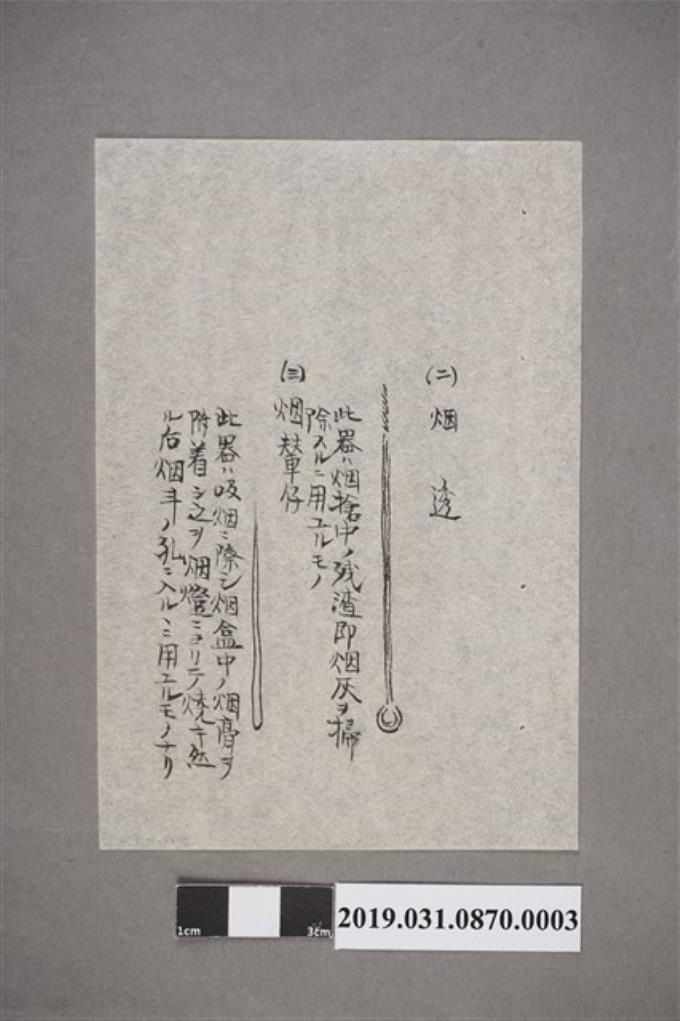 (二) 烟透
此器ハ烟捨中ノ残渣即烟灰ヲ掃
除スルニ用ユルモノ
(三) 烟輦仔
此器ハ吸烟ニ際シ烟盒中ノ烟膏ヲ
附着シ之ヲ烟燈ニヨリテ焼キ然
ル后烟斗ノ孔ニ入ルヽニ用ユルモノナリ
1cm
3cm
2019.031.0870.0003